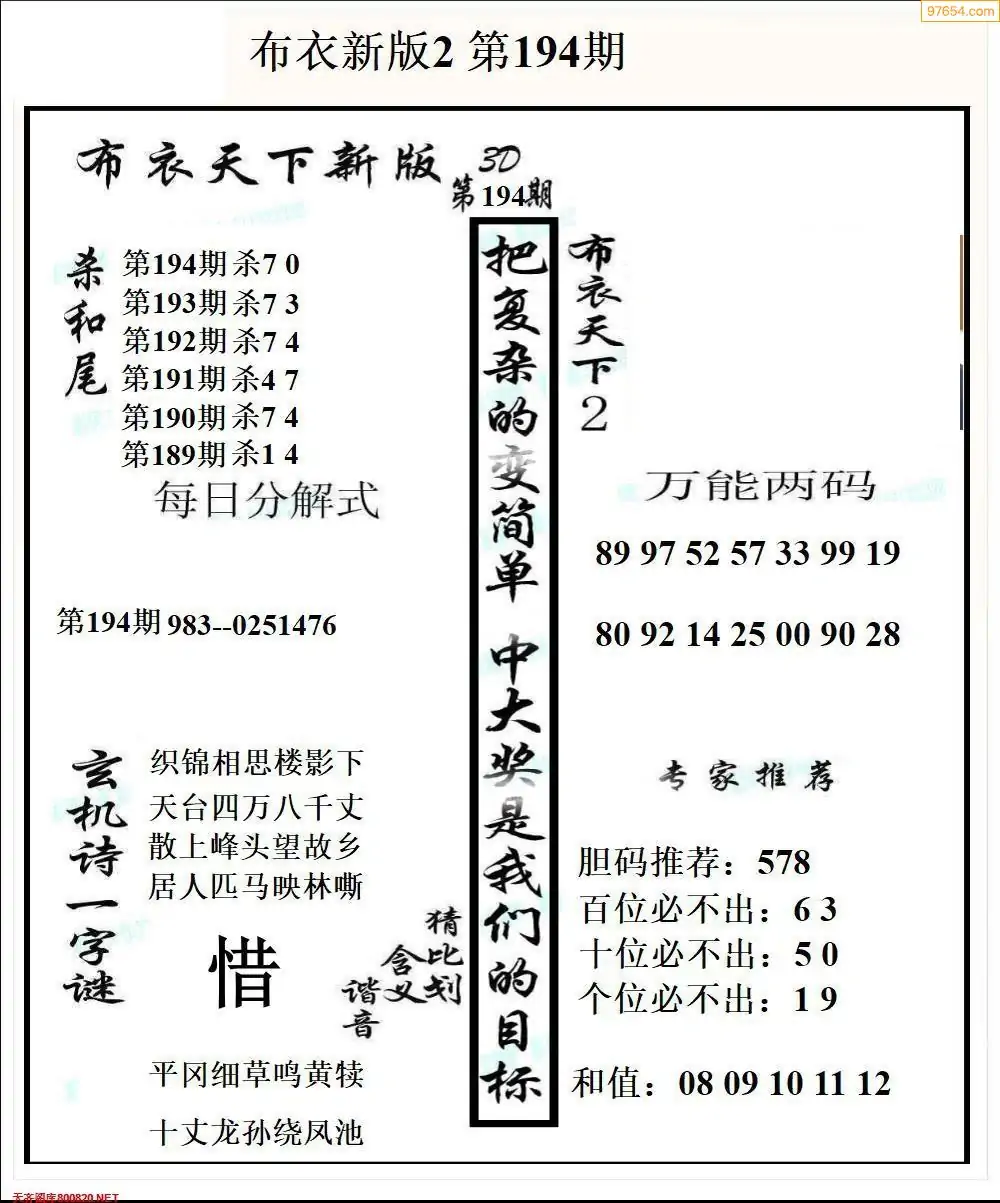 97654.com
布衣新版2 第194期
布衣天下新版
3D
第194期
杀和尾
第194期 杀7 0
第193期 杀7 3
第192期 杀7 4
第191期 杀4 7
第190期 杀7 4
第189期 杀1 4
每日分解式
第194期 983--0251476
玄机诗一字谜
织锦相思楼影下
天台四万八千丈
散上峰头望故乡
居人匹马映林嘶
惜
猜比划
含义
谐音
平冈细草鸣黄犊
十丈龙孙绕凤池
把复杂的变简单 中大奖是我们的目标
布衣天下2
万能两码
89 97 52 57 33 99 19
80 92 14 25 00 90 28
专家推荐
胆码推荐：578
百位必不出：6 3
十位必不出：5 0
个位必不出：1 9
和值：08 09 10 11 12
天齐图库800820.NET